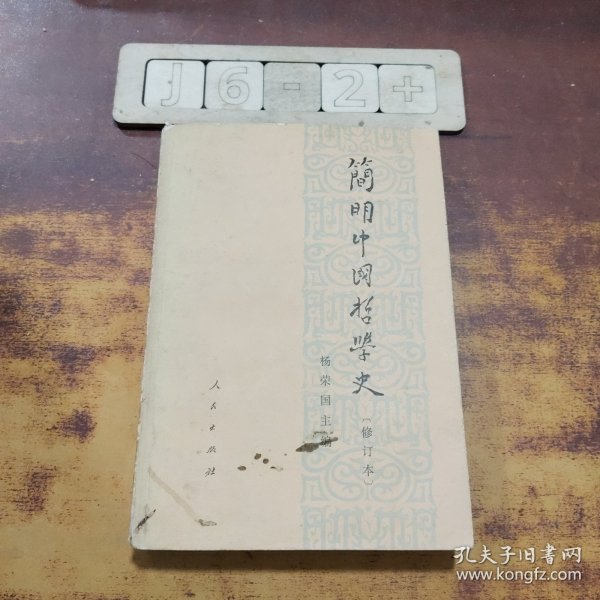 J6-2+
簡明中国哲學史
〔修订本〕
杨荣国主编
人民出版社
孔夫子旧书网
www.kongfz.com